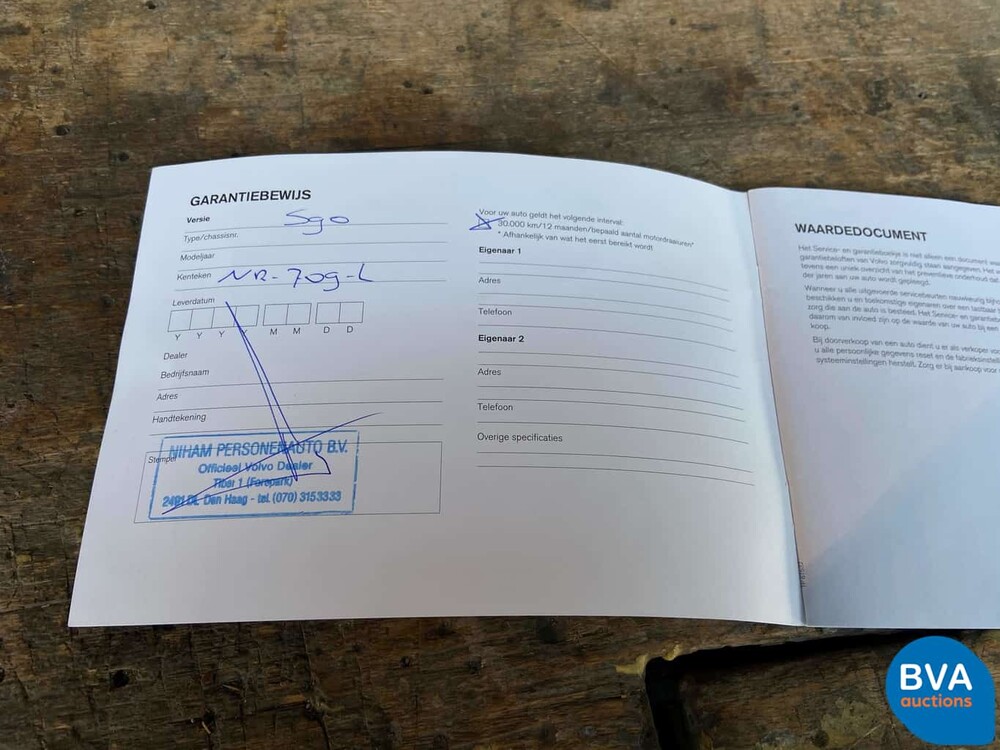 GARANTIEBEWIJS
Versie S90
Type/chassisnr.
Modeljaar
Kenteken NR-709-L
Leverdatum
Y Y Y Y M M D D
Dealer
Bedrijfsnaam
Adres
Handtekening
Stempel
NIHAM PERSONENAUTO B.V.
Officieel Volvo Dealer
Tiber 1 (Forepark)
2491 DL Den Haag - tel. (070) 3153333
Voor uw auto geldt het volgende interval:
30.000 km/12 maanden/bepaald aantal motordraaiuren*
* Afhankelijk van wat het eerst bereikt wordt
Eigenaar 1
Adres
Telefoon
Eigenaar 2
Adres
Telefoon
Overige specificaties
WAARDEDOCUMENT
Het Service- en garantieboekje is niet alleen een document
garantiebeloften van Volvo zorgvuldig staan aangegeven. Het
tevens een uniek overzicht van het preventieve onderhoud dat
der jaren aan uw auto wordt gepleegd.
Wanneer u alle uitgevoerde servicebeurten nauwkeurig
beschikken u en toekomstige eigenaren over een tastbaar
zorg die aan de auto is besteed. Het Service- en
daarom van invloed zijn op de waarde van uw auto bij een
koop.
Bij doorverkoop van een auto dient u er als verkoper
u alle persoonlijke gegevens reset en de
systeeminstellingen herstelt. Zorg er bij aankoop voor
BVA
auctions